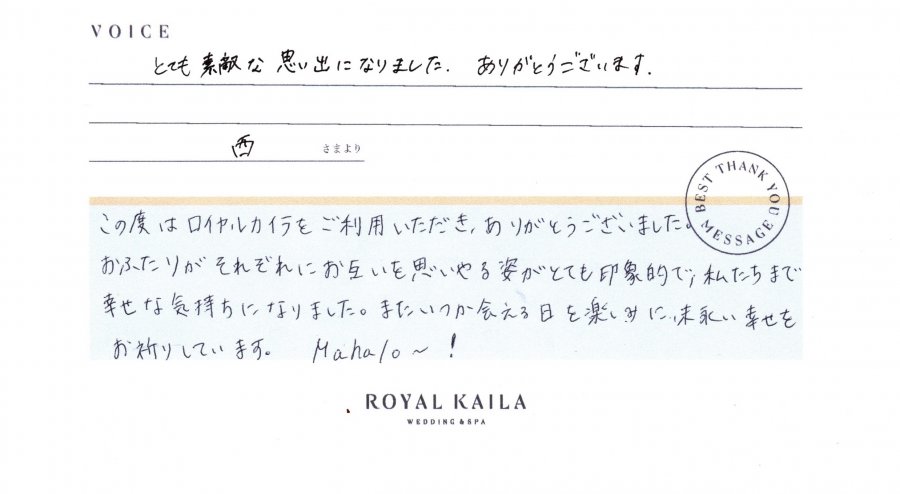 VOICE
とても素敵な思い出になりました. ありがとうございます.
西 さまより
BEST THANK YOU MESSAGE
この度はロイヤルカイラをご利用いただき,ありがとうございました。
おふたりがそれぞれにお互いを思いやる姿がとても印象的で,私たちまで
幸せな気持ちになりました。またいつか会える日を楽しみに,末永い幸せを
お祈りしています。 Mahalo〜!
ROYAL KAILA
WEDDING & SPA